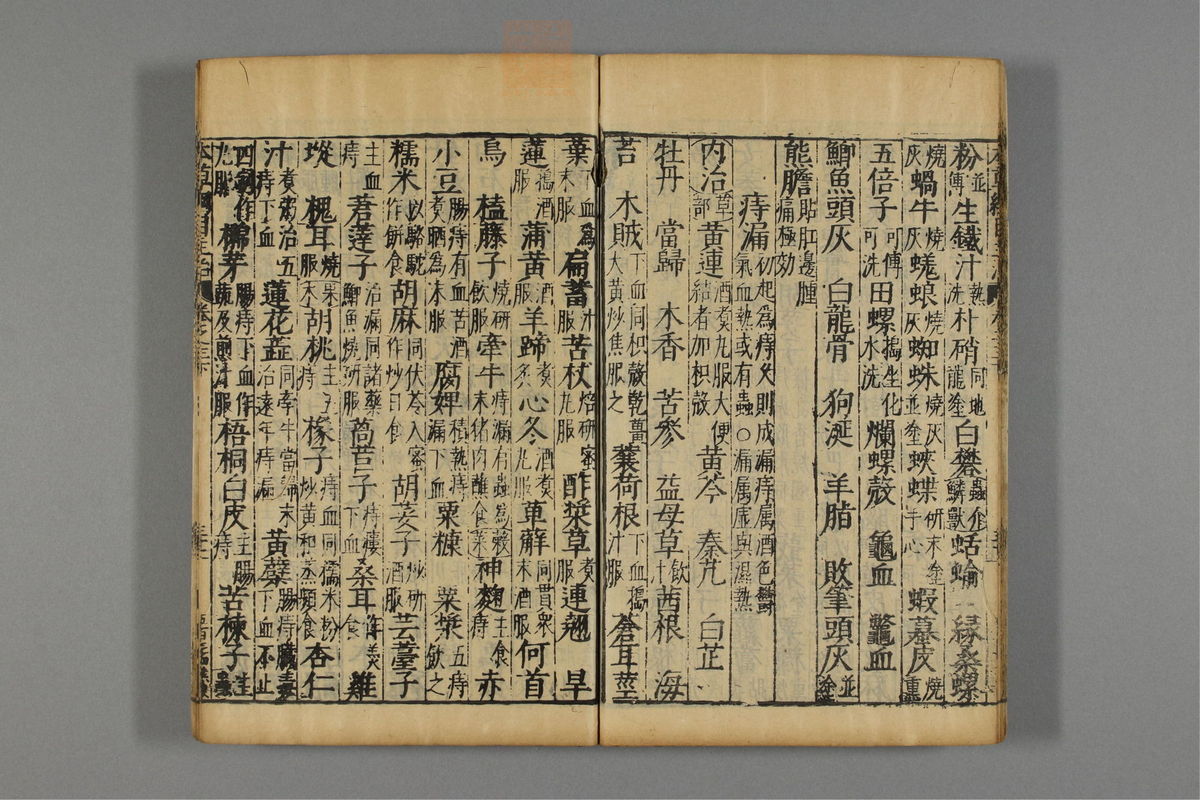 粉並傅生鐵汁熱洗朴硝同地龍塗白礬蟲介鱗獸蛞蝓 緣桑螺
燒灰蝸牛燒灰蜣蜋燒灰蜘蛛燒灰並塗蛺蝶研末塗手心蝦蟇皮燒熏
五倍子可傅可洗田螺搗塗化水洗爛螺殼 龜血 鼈血
鯽魚頭灰 白龍骨 狗涎 羊脂 敗筆頭灰並塗
熊膽貼肛邊腫痛極効
痔漏初起為痔久則成漏痔属酒色鬱氣血熱或有蟲○漏属虛與濕熱
内治草部黃連煮酒丸服大便結者加枳殼黃芩 秦艽 白芷
牡丹 當歸 木香 苦參 益母草飲汁茜根 海
苔 木賊下血同枳殼乾薑大黃炒焦服之蘘荷根下血搗汁服蒼耳莖
葉下血為末服萹蓄汁服苦杖焙研蜜丸服酢漿草煮服連翹 旱
蓮搗酒服蒲黃酒服羊蹄煮炙心冬酒煮丸服萆薢同貫衆末酒服何首
烏 榼藤子燒研飲服牽牛痔漏有蟲為末猪肉蘸食神麴主食痔赤
小豆腸痔有血苦酒煮晒為末服腐婢積熱痔漏下血粟糠 粟漿五痔飲之
糯米以駱駝作餅食胡麻同伏苓入蜜作炒日食胡荽子炒研酒服芸薹子
主血痔莙薘子治漏同諸藥鯽魚燒研服萵苣子痔瘻下血桑耳作羹食雞
㙡 槐耳燒服末胡桃主五痔橡子痔血同糯米粉炒黃和蒸頻食杏仁
汁煮粥治五痔下血蓮花蕋同牽牛當歸末治遠年痔漏黃蘗腸痔臟毒下血不止
四製作丸服 梧桐白皮主腸痔苦楝子主蟲